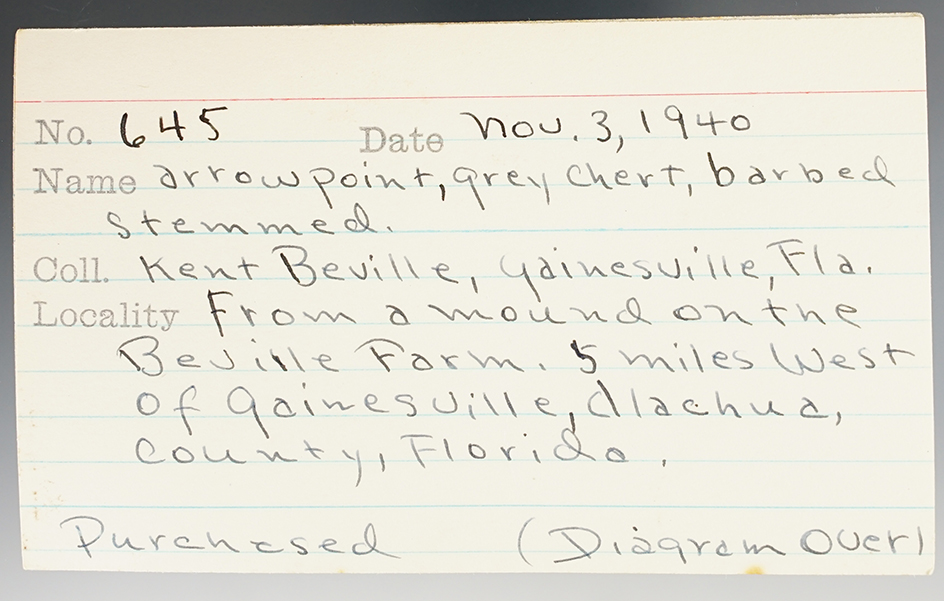 No. 645 Date Nov. 3, 1940
Name arrowpoint, grey chert, barbed
stemmed.
Coll. Kent Beville, Gainesville, Fla.
Locality From a mound on the
Beville Farm. 5 miles West
of Gainesville, Alachua,
County, Florida.
Purchased (Diagram Over)